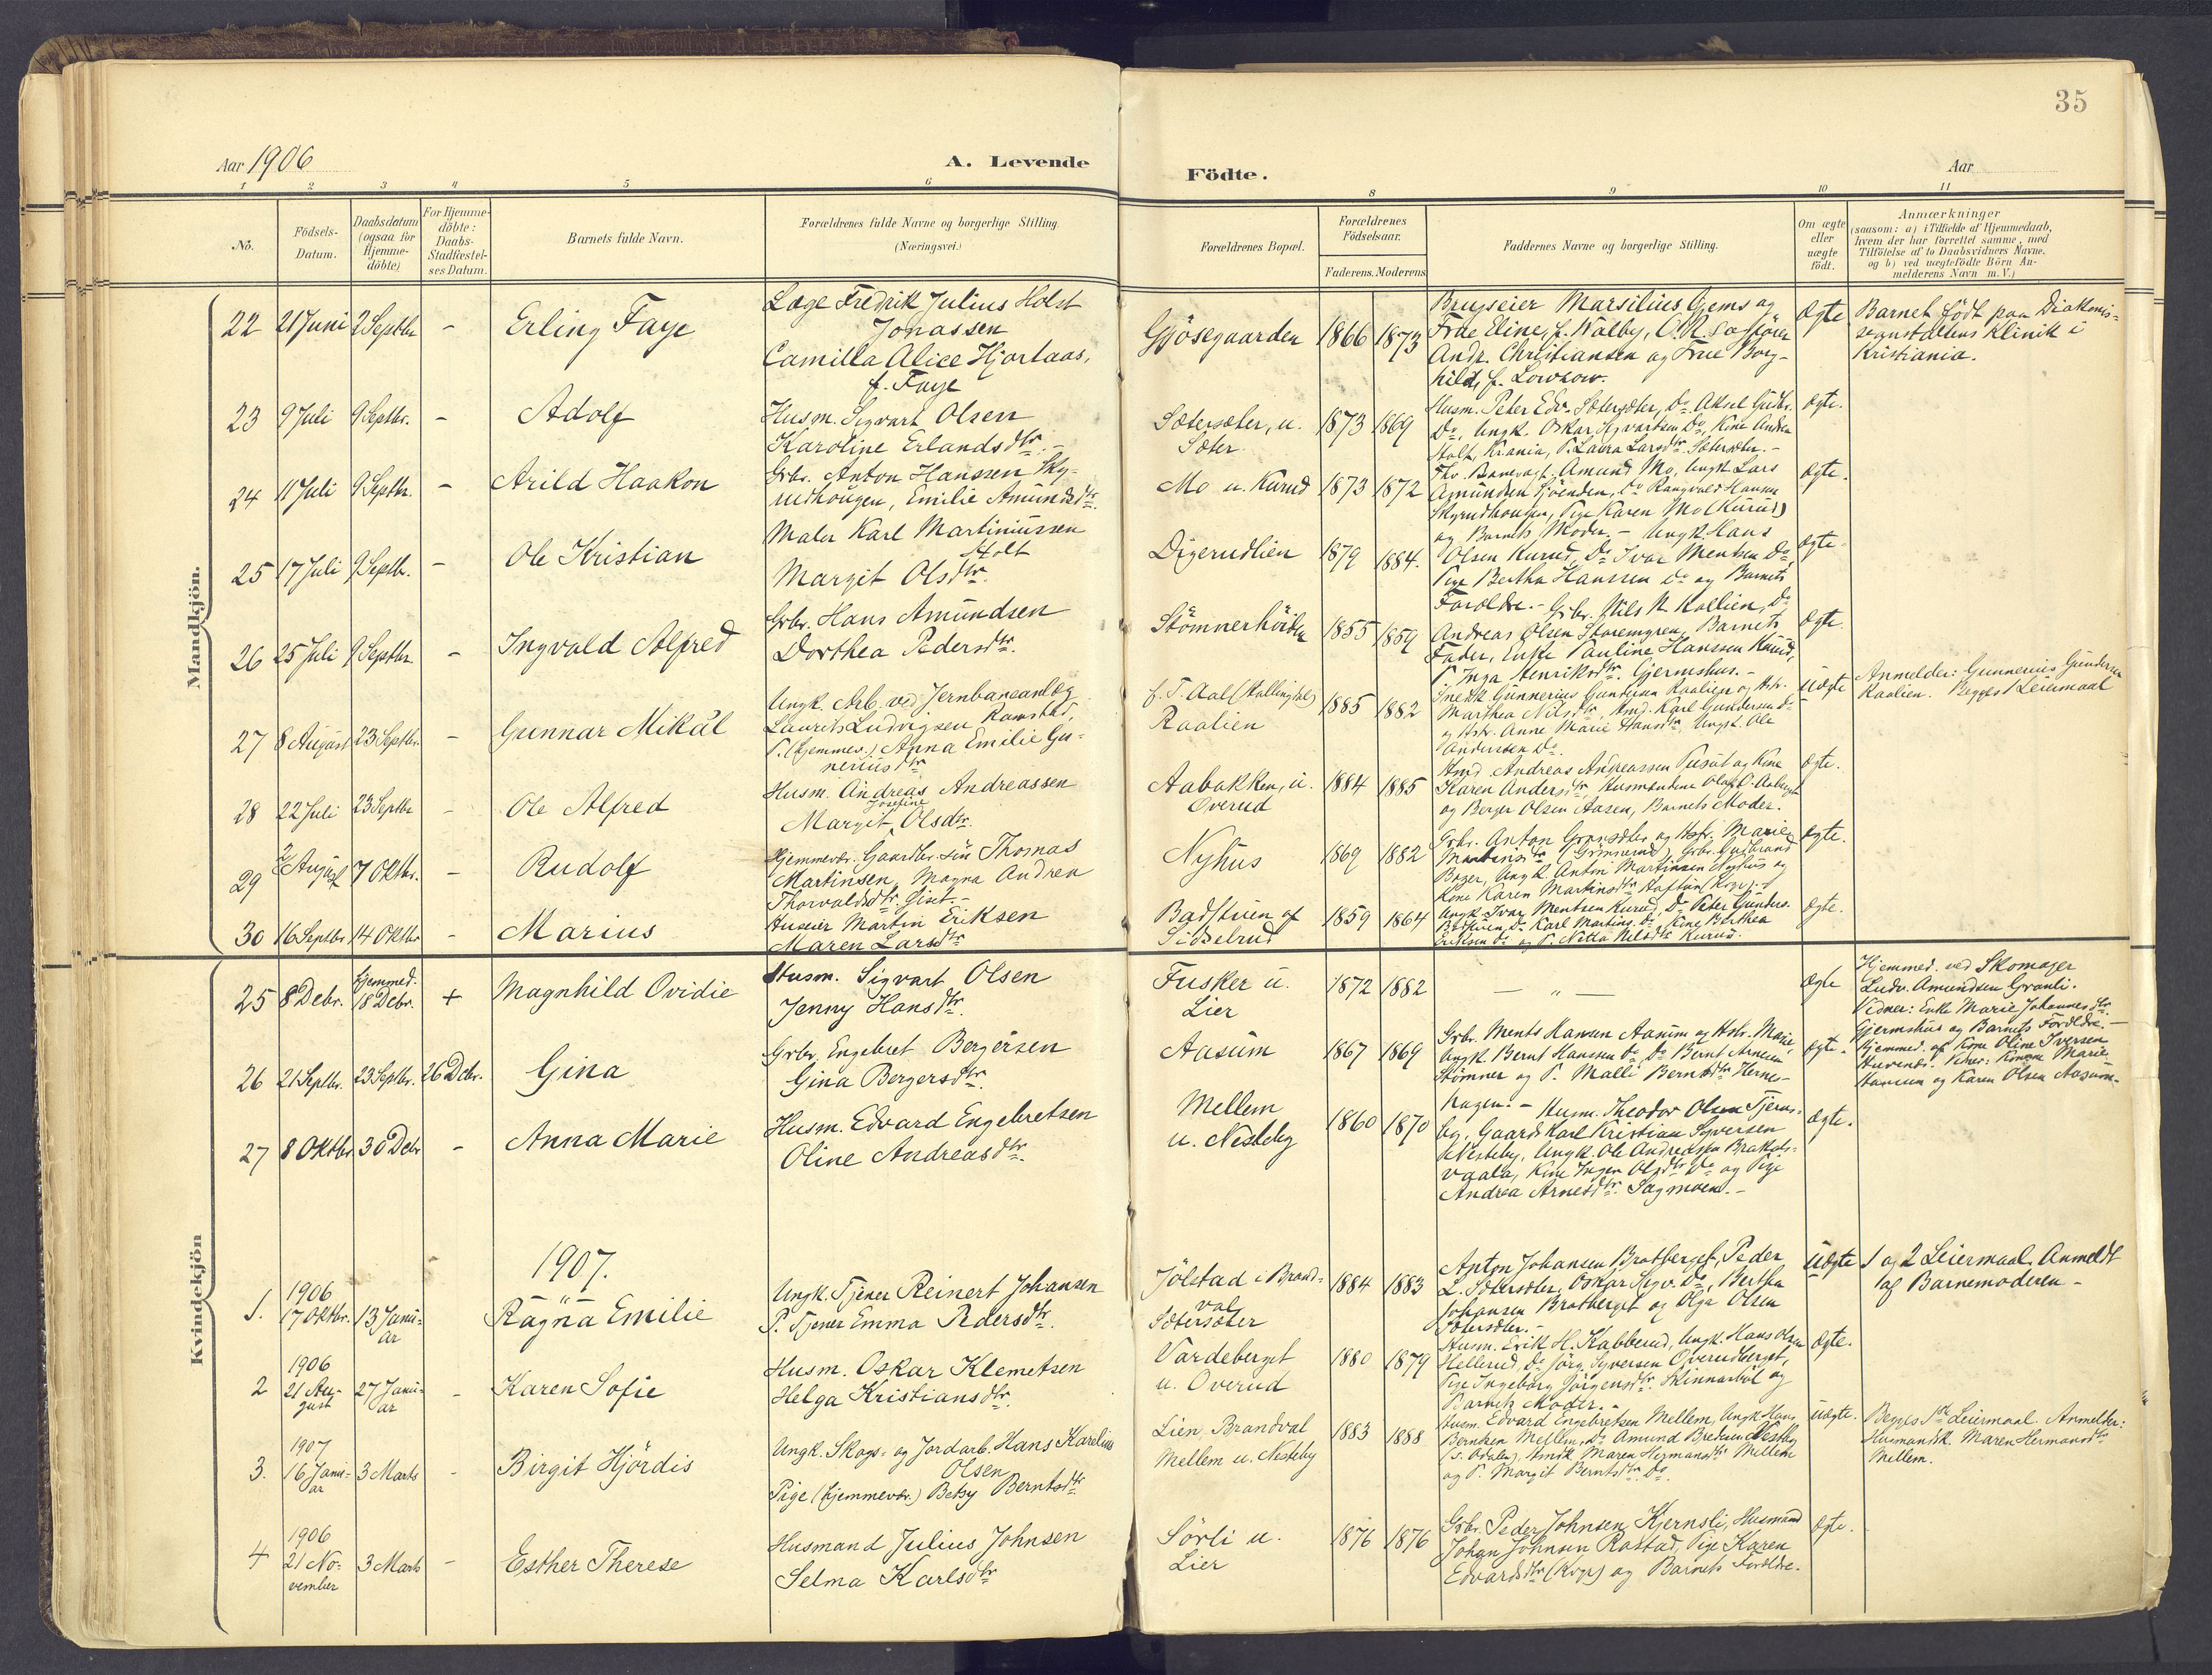 35
Aar 1906
A. Levende
Födte.
Aar
1
2
3
4
5
6
8
9
10
11
No.
Födsels-
Datum.
Daabsdatum
(ogsaa for
Hjemme-
döbte)
For Hjemme-
döbte:
Daabs-
Stadfæstel-
ses Datum.
Barnets fulde Navn.
Forældrenes fulde Navne og borgerlige Stilling
(Næringsvei.)
Forældrenes Bopæl.
Forældrenes
Födselsaar.
Faderens. Moderens
Faddernes Navne og borgerlige Stilling.
Om ægte
eller
uægte
födt.
Anmærkninger
(saasom: a) i Tilfælde af Hjemmedaab,
hvem der har forrettet samme, med
Tilföielse af to Daabsvidners Navne,
og b) ved uægtefödte Börn An-
melderens Navn m. V.)
Mandkjön.
22 21 Juni 2 Septbr - Erling Faye
Læge Fredrik Julius Holst
Jonassen
Camilla Alice Hjortaas,
f. Faye
Gjösegaarden 1866 1873
Brugseier Marsilius Gjems og
Frue Eline, f. Walby, O.R. Sagförer
Andr. Christiansen og Frue Borg-
hild, f. Lowzow.
Ægte
Barnet födt paa Diakonis-
seanstaltens Klinik i
Kristiania.
23 9 Juli 9 Septbr. - Adolf
Husm. Sigvart Olsen
Karoline Erlandsdtr. -
Sætersæter, u.
Sæter
1873 1869
Husm. Peter Edv. Sætersæter, Do Aksel Gudbr.
Do, Ungk. Oskar Sigvartsen Do, Kine Andrea
Holt, Krania, P. Laura Larsdtr. Sætersæter. -
Ægte.
24 11 Juli 9 Septbr. - Arild Haakon
Grbr. Anton Hanssen Sky-
rudhougen, Emilie Amundsdtr.
Mo u. Kurud 1873 1872
Fhv. Banevogt Amund Mo, Ungk. Lars
Amundsen Sjöenden, Do Rangvald Hansen
Skyrudhougen, Pige Karen Mo (Kurud)
og Barnets Moder. -
Ægte.
25 17 Juli 9 Septbr. - Ole Kristian
Maler Karl Martiniussen
Holt
Margit Olsdtr.
Digerudlien 1879 1884.
Ungk. Hans
Olsen Kurud, Do Ivar Mentsen Do,
Pige Bertha Hanssen Do og Barnets
Forældre. -
Ægte.
26 25 Juli 9 Septbr - Ingvald Alfred
Grbr. Hans Amundsen
Dorthea Pedersdtr.
Stömnerhöiden 1855 1859
Grbr. Nils N. Kollien, Do
Andreas Olsen Storemyren, Barnets
Fader, Enke Pauline Hanssen Kurud,
P. Inga Henriksdtr. Gjermshus. -
Ægte.
27 8 August 23 Septbr. - Gunnar Mikal
Ungk. Arb. ved Jernbaneanlæg
Laurits Ludvigsen Ramstad,
P. (hjemmev.) Anna Emilie Gu-
neriusdtr
f. T. Aal (Hallingdal)
Raalien
1885 1882
Inerk Gunnerius Gundersen Raalien og Hstr.
Marthea Nilsdtr, Smd. Karl Gundersen do
og Hstr. Anne Marie Hansdtr, Ungk. Ole
Andersen Do.
Uægte
Anmelder: Gunnerius Gundersen
Raalien. Begges 1 Leiermaal
28 22 Juli 23 Septbr - Ole Alfred
Husm. Andreas Andreassen
Josefine
Margit Olsdtr.
Aabakken, u.
Overud
1884 1885
Smd. Andreas Andreassen og Kone
Karen Andersdtr, Husmændene Olaf O. Aabogen
og Berger Olsen Aasen, Barnets Moder.
Ægte.
29 2/ August 7 Oktbr. - Rudolf
Hjemmevær. Gaardbr.sön Thomas
Martinsen, Magna Andrea
Thorvaldsdtr. Gjest. -
Nyhus 1869 1882
Grbr. Anton Gransæter og Hstr. Marie
Martinsdtr (Grinnerud), Grbr. Gudbrand
Boger, Ungk. Anton Martinsen Nyhus og
Kone Karen Martinsdtr
Ægte.
30 16 Septbr 14 Oktbr - Marius
Huseier Martin Eriksen
Maren Larsdtr
Badstuen af
Sibelrud
1859 1864
Ungk. Ivar Mentsen Kurud, Do Peter Gunders.
Badstuen, Do Karl Martins. Do, Kone Berthea
Eriksen Do og P. Netta Nilsdtr Kurud.
Ægte.
Kvindekjön
25 8 Debr. Hjemmed.
18 Debr. + Magnhild Ovidie
Husm. Sigvart Olsen
Jenny Hansdtr.
Fusker u.
Lier
1872 1882
— „ —
Ægte
Hjemmed. ved Skomager
Ludv. Amundsen Granli.
Vidner: Enke Marie Johannesdtr.
Gjermshus og Barnets Forældre. -
26 21 Septbr. 23 Septbr. 26 Debr. Gina
Grbr. Engebret Bergersen
Gina Bergersdtr.
Aasum 1867 1869
Grbr. Ments Hansen Aasum og Hstr. Marie,
Ungk. Bernt Hanssen Do, Do Bernt Arnesen
Stömner og P. Malli Berntsdtr Hernes-
hagen. -
Ægte.
Hjemmed. af Kone Oline Iversen
Stuvenes. Vidner: Konerne Marie
Hansen og Karen Olsen Aasum.
27 8 Oktbr. 30 Debr - Anna Marie
Husm. Edvard Engebretsen
Oline Andreasdtr.
Mellem
u. Nesteby
1860 1870
Husm. Theodor Olsen Tjerns-
bg. Gaardb. Karl Kristian Syversen
Nesteby, Ungk. Ole Andreassen Brakals-
vaala, Kone Inger Olsdtr Do og Pige
Andrea Arnesdtr. Sagmoen. -
Ægte.
1907.
1. 1906
17 Oktbr. 13 Janu-
ar
— „ —
Ragna Emilie
Ungk. Tjener Reinert Johansen
P. Tjener Emma Pedersdtr.
Jölstad i Brand-
val
Sætersæter
1884 1883
Anton Johansen Bratberget, Peder
L. Sætersæter, Oskar Sigv. Do, Bertha
Johansen Bratberget og Olga Olsen
Sætersæter. -
Uægte
1 og 2 Leiermaal. Anmeldt
af Barnemoderen -
2 1906
21 Au-
gust
27 Janu-
ar
- Karen Sofie
Husm. Oskar Klemetsen
Helga Kristiansdtr.
Vardeberget
u. Overud
1880 1879
Husm. Erik H. Kabberud, Ungk. Hans Olsen
Hellerud, Do Jörg. Syversen Overudberget,
Pige Ingeborg Jörgensdtr. Skinnarböl og
Barnets Moder. -
Ægte.
3. 1907
16 Janu-
ar
3 Marts - Birgit Hjördis
Ungk. Skogs- og Jordarb. Hans Karelius
Olsen
Pige (hjemmevær.) Betsy Berntsdtr
Lien, Brandval
Mellem u. Nesteby
1883 1888
Husm. Edvard Engebretsen Mellem, Ungk. Hans
Berntsen Mellem, Do Amund Bredesen Nesteby
(S. Odalen), Smdk. Maren Hermansdtr Mellem
og P. Margit Berntsdtr. Do.
Uægte.
Begges 1ste Leiermaal. Anmelder:
Husmandsk. Maren Hermansdtr
Mellem.
4 1906
21 No-
vember
3 Marts - Esther Therese
Husmand Julius Johnsen
Selma Karlsdtr
Sörli u.
Lier
1876 1876
Grbr. Peder Johnsen Kjernsli, Husmand
Johan Johnsen Rastad, Pige Karen
Edvardsdtr (Kvgr) og Barnets Forældre.
Ægte.